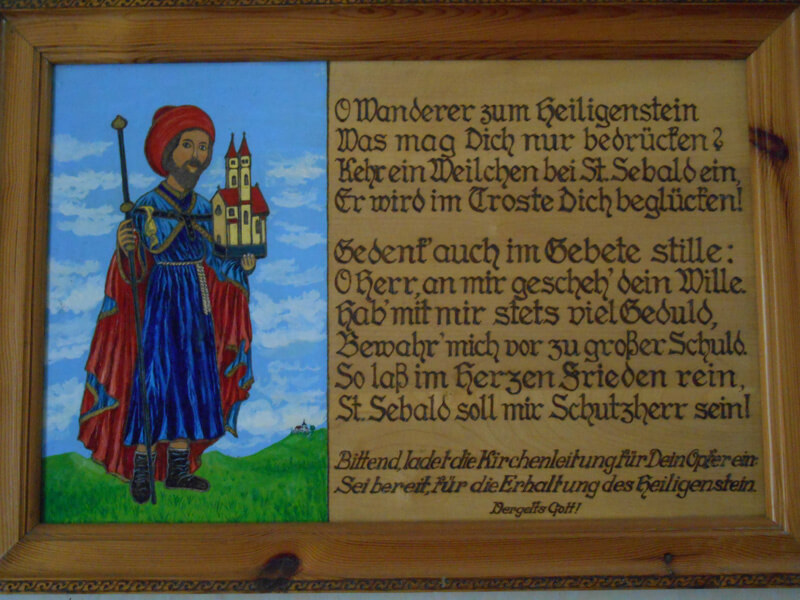 O Wanderer zum Heiligenstein
Was mag Dich nur bedrücken?
Kehr ein Weilchen bei St. Sebald ein,
Er wird im Troste Dich beglücken!
Gedenk' auch im Gebete stille:
O Herr, an mir gescheh' dein Wille.
Hab' mit mir stets viel Geduld,
Bewahr' mich vor zu großer Schuld.
So laß im Herzen Frieden rein,
St. Sebald soll mir Schutzherr sein!
Bittend, ladet die Kirchenleitung für Dein Opfer ein:
Sei bereit, für die Erhaltung des Heiligenstein.
Vergelts Gott!